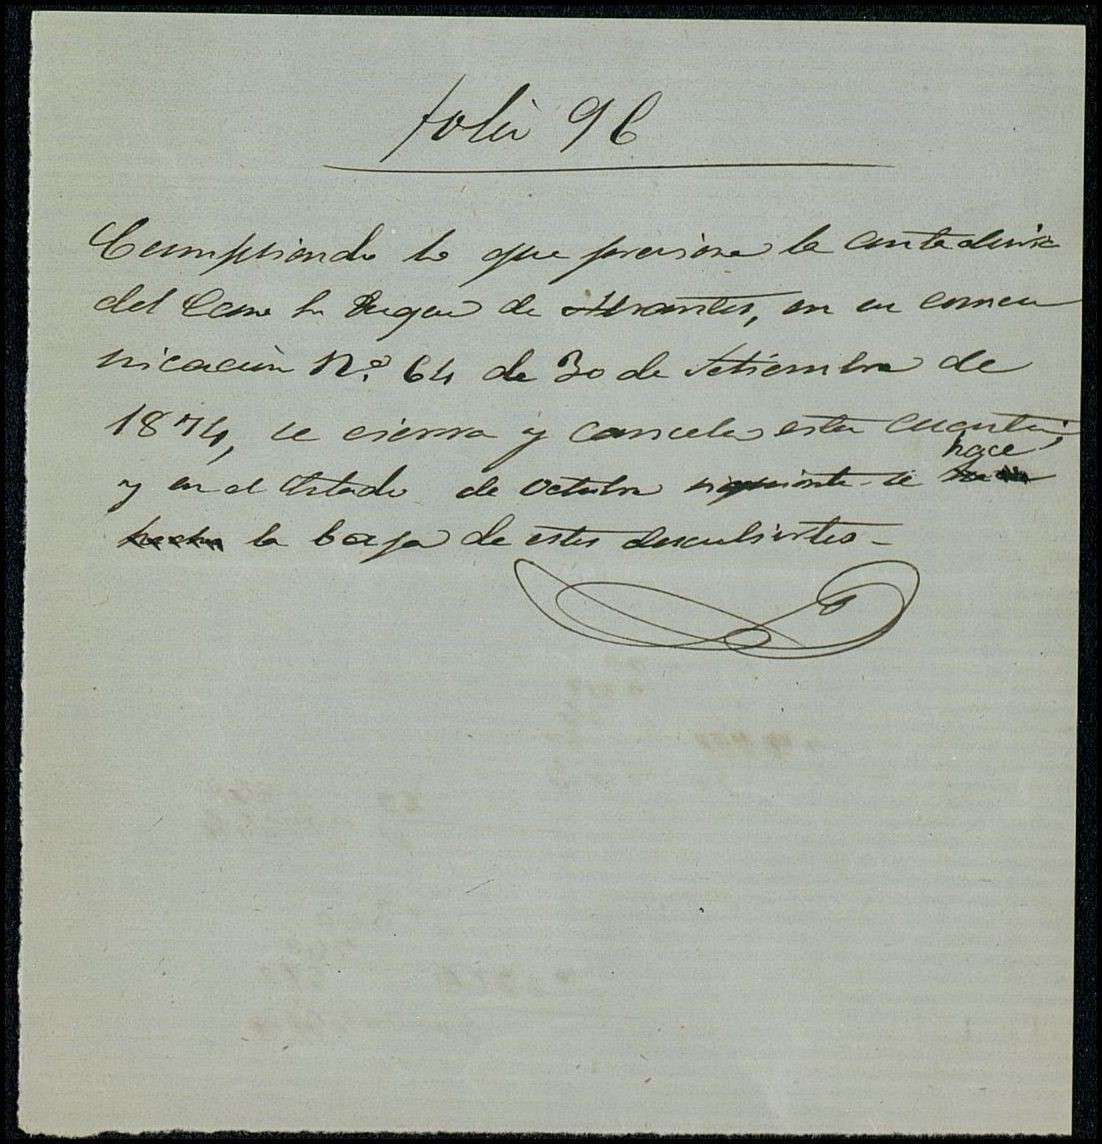 folio 96
Cumpliendo lo que previene la contaduria
del Exmo Sr Duque de Abrantes, en su comu
nicación N.º 64 de 30 de Setiembre de
1874, se cierra y cancela esta cuenta,
y en el Estado de Octubre siguiente se hace
la baja de estos descubiertos –